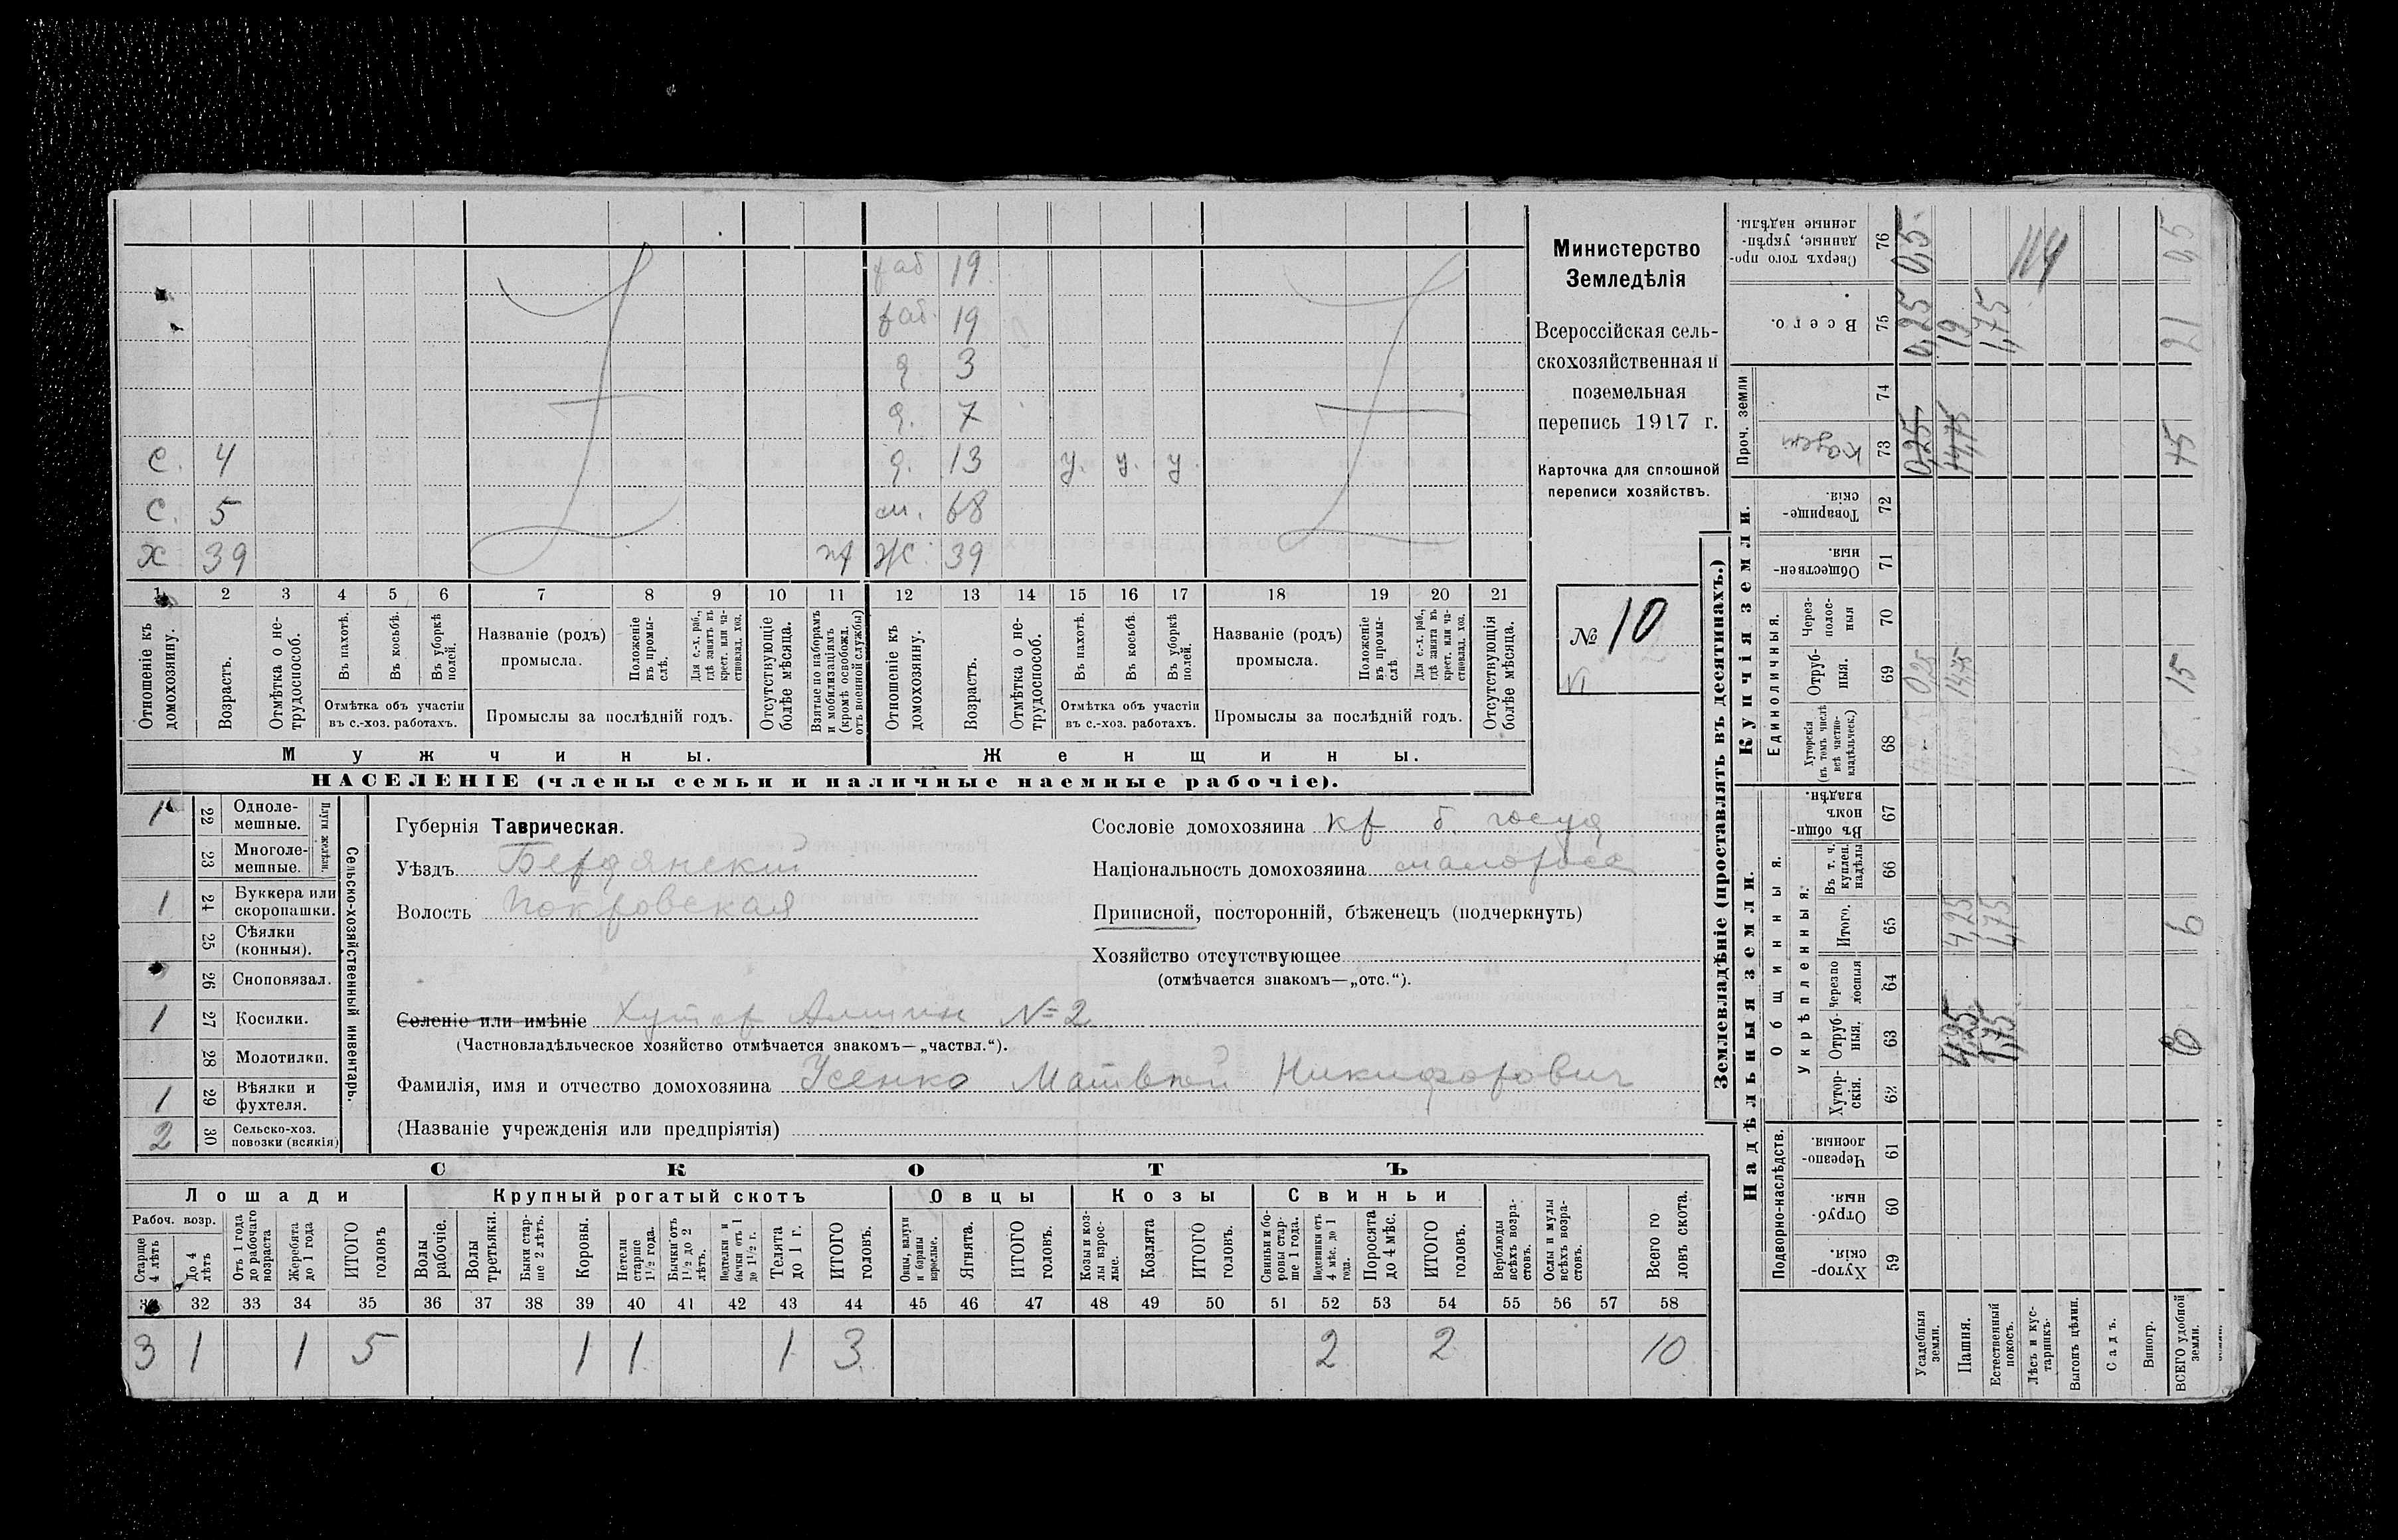 Министерство
Земледѣлія
Всероссійская сель-
скохозяйственная и
поземельная
перепись 1917 г.
Карточка для сплошной
переписи хозяйствъ.
№ 10
раб 19
раб. 19
д. 3
д. 7
с. 4 д. 13 у. у. у
с. 5 м. 68
х 39 Ж. 39
1 2 3 4 5 6 7 8 9 10 11 12 13 14 15 16 17 18 19 20 21
Отношеніе къ домохозяину.
Возрастъ.
Отмѣтка о не-трудоспособ.
Въ пахотѣ.
Въ косьбѣ.
Въ уборкѣ полей.
Отмѣтка объ участіи
въ с.-хоз. работахъ.
Названіе (родъ)
промысла.
Положеніе въ промы-слѣ.
Для с.-х. раб., гдѣ занятъ въ крест. или ча-стновлад. хоз.
Промыслы за послѣдній годъ.
Отсутствующіе болѣе мѣсяца.
Взятые по наборамъ и мобилизаціямъ (кромѣ освобожд. отъ военной службы)
Отношеніе къ домохозяину.
Возрастъ.
Отмѣтка о не-трудоспособ.
Въ пахотѣ.
Въ косьбѣ.
Въ уборкѣ полей.
Отмѣтка объ участіи
въ с.-хоз. работахъ.
Названіе (родъ)
промысла.
Положеніе въ промы-слѣ
Для с.-х. раб., гдѣ занята въ крест. или ча-стновлад. хоз.
Промыслы за послѣдній годъ.
Отсутствующія болѣе мѣсяца.
Мужчины. Женщины.
НАСЕЛЕНІЕ (члены семьи и наличные наемные рабочіе).
Сельско-хозяйственный инвентарь.
Плуги желѣзн.
1 22 Однолемешные.
23 Многолемешные.
1 24 Буккера или скоропашки.
25 Сѣялки (конныя).
26 Сноповязал.
1 27 Косилки.
28 Молотилки.
1 29 Вѣялки и фухтеля.
2 30 Сельско-хоз. повозки (всякія)
Губернія Таврическая.
Уѣздъ Бердянскій
Волость Покровская
Сословіе домохозяина кр б. госуд
Національность домохозяина малоросс
Приписной, посторонній, бѣженецъ (подчеркнуть)
Хозяйство отсутствующее
(отмѣчается знакомъ—„отс.“).
Селеніе или имѣніе Хутор Алтын №2
(Частновладѣльческое хозяйство отмѣчается знакомъ—„частвл.“).
Фамилія, имя и отчество домохозяина Усенко Матвѣй Никифорович
(Названіе учрежденія или предпріятія)
СКОТЪ
Лошади Крупный рогатый скотъ Овцы Козы Свиньи
Рабоч. возр.
Старше 4 лѣтъ
До 4 лѣтъ
Отъ 1 года до рабочаго возраста
Жеребята до 1 года
ИТОГО головъ
Волы рабочіе.
Волы третьяки.
Быки стар-ше 2 лѣтъ.
Коровы.
Нетели старше 1½ года.
Бычки отъ 1½ до 2 лѣтъ.
Подтелки и бычки отъ 1 до 1½ г.
Телята до 1 г.
ИТОГО головъ.
Овцы, валухи и бараны взрослые.
Ягнята.
ИТОГО головъ.
Козы и коз-лы взрос-лые.
Козлята
ИТОГО головъ.
Свиньи и бо-ровы стар-ше 1 года.
Подсвинки отъ 4 мѣс. до 1 года.
Поросята до 4 мѣс.
ИТОГО головъ.
Верблюды всѣхъ возра-стовъ.
Ослы и мулы всѣхъ возра-стовъ.
Всего го-ловъ скота.
32 33 34 35 36 37 38 39 40 41 42 43 44 45 46 47 48 49 50 51 52 53 54 55 56 57 58
3 1 1 5 1 1 1 3 2 2 10
Землевладѣніе (проставлять въ десятинахъ.)
Надѣльныя земли.
Купчія земли.
Проч. земли
Подворно-наслѣдств.
Общинныя.
Укрѣпленныя.
Единоличныя.
59 Хутор-скія.
60 Отруб-ныя.
61 Черезпо-лосныя.
62 Хутор-скія.
63 Отруб-ныя.
64 Черезпо-лосныя
65 Итого.
66 Въ т. ч. куплен. надѣлы
67 Въ общин-номъ владѣн.
68 Хуторскія (въ томъ числѣ всѣ частно-владѣльческ.)
69 Отруб-ныя.
70 Через-полос-ныя
71 Обществен-ныя.
72 Товарище-скія.
73
74
75 Всего.
76 Сверхъ того про-данные, укрѣп-ленные надѣлы.
Усадебныя земли. 0,25 0,25 0,25 0,5
Пашня. 4,25 4,25 14,75 14,75 19
Естественный покосъ. 1,75 1,75 1,75
Лѣсъ и кус-тарникъ.
Выгонъ цѣлин.
Садъ.
Виногр.
ВСЕГО удобной земли. 6 6 15 15 21 0,5